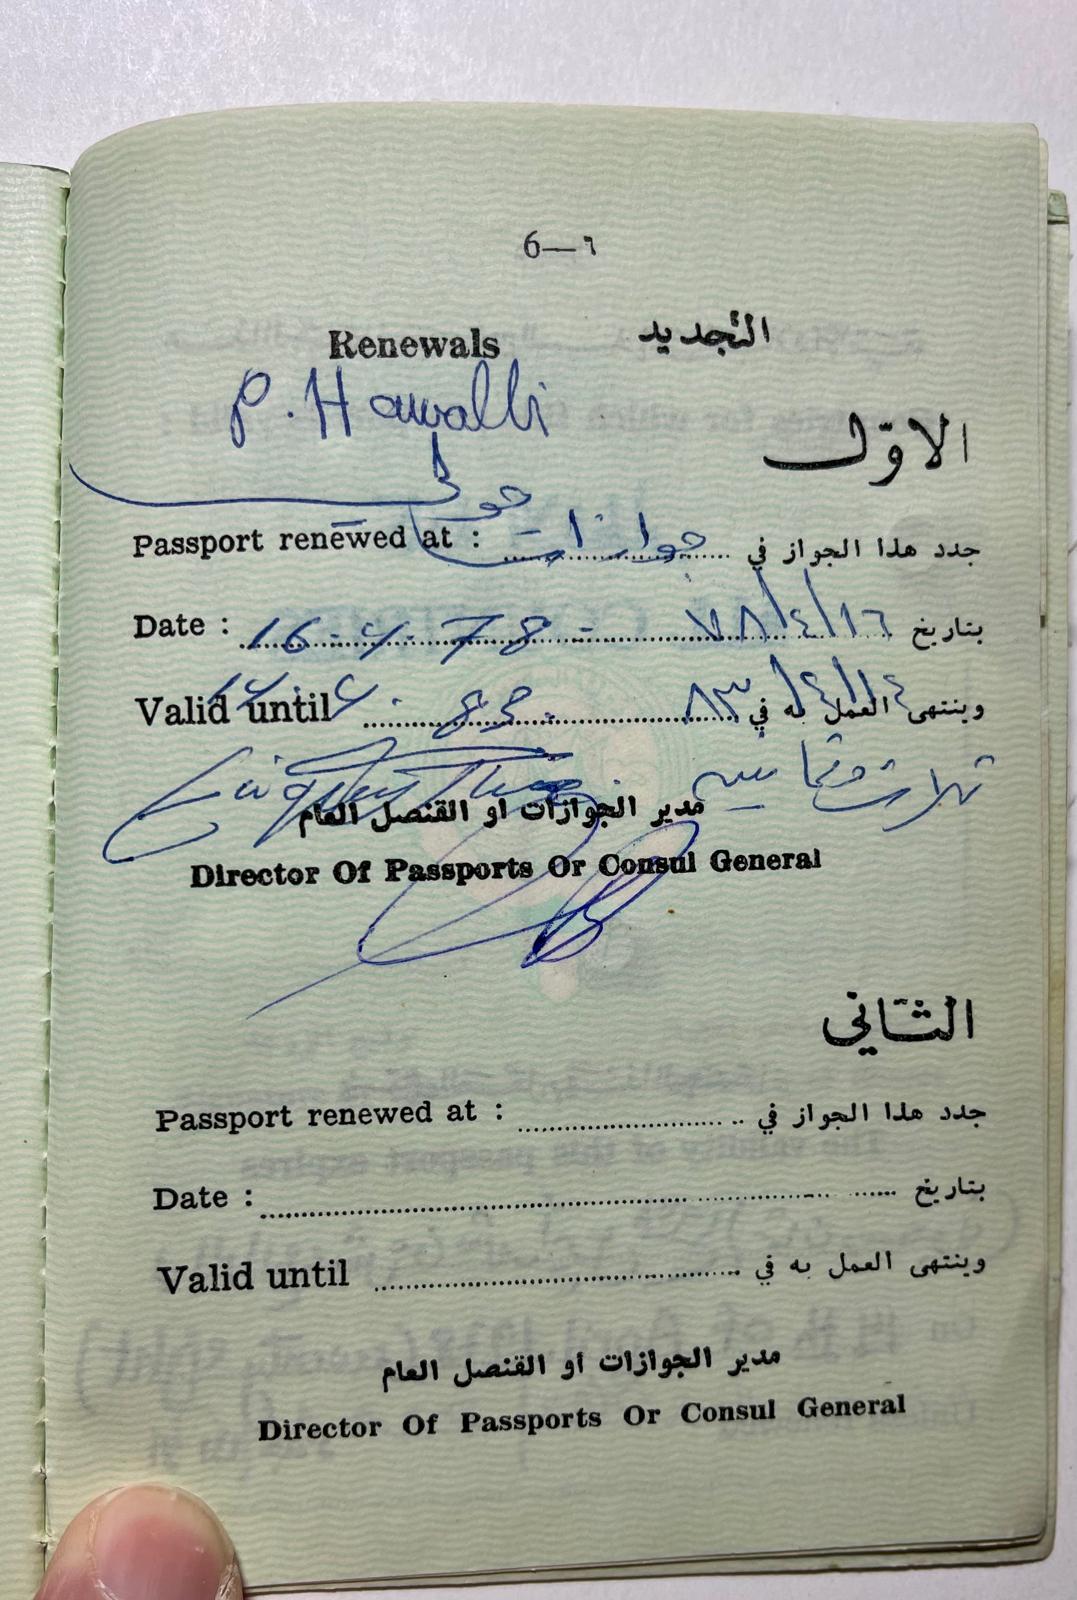 6—٦
Renewals التجديد
P. Hawalli
الاوّل
حولي
Passport renewed at : جوازات جدد هذا الجواز في
Date : 16-4-78 ٧٨/٤/١٦ بتاريخ
Valid until 14.4.83 ٨٣/٤/١٤ وينتهى العمل به في
ثلاث وثمانين
مدير الجوازات او القنصل العام
Director Of Passports Or Consul General
الثاني
Passport renewed at : جدد هذا الجواز في
Date : بتاريخ
Valid until وينتهى العمل به في
مدير الجوازات او القنصل العام
Director Of Passports Or Consul General